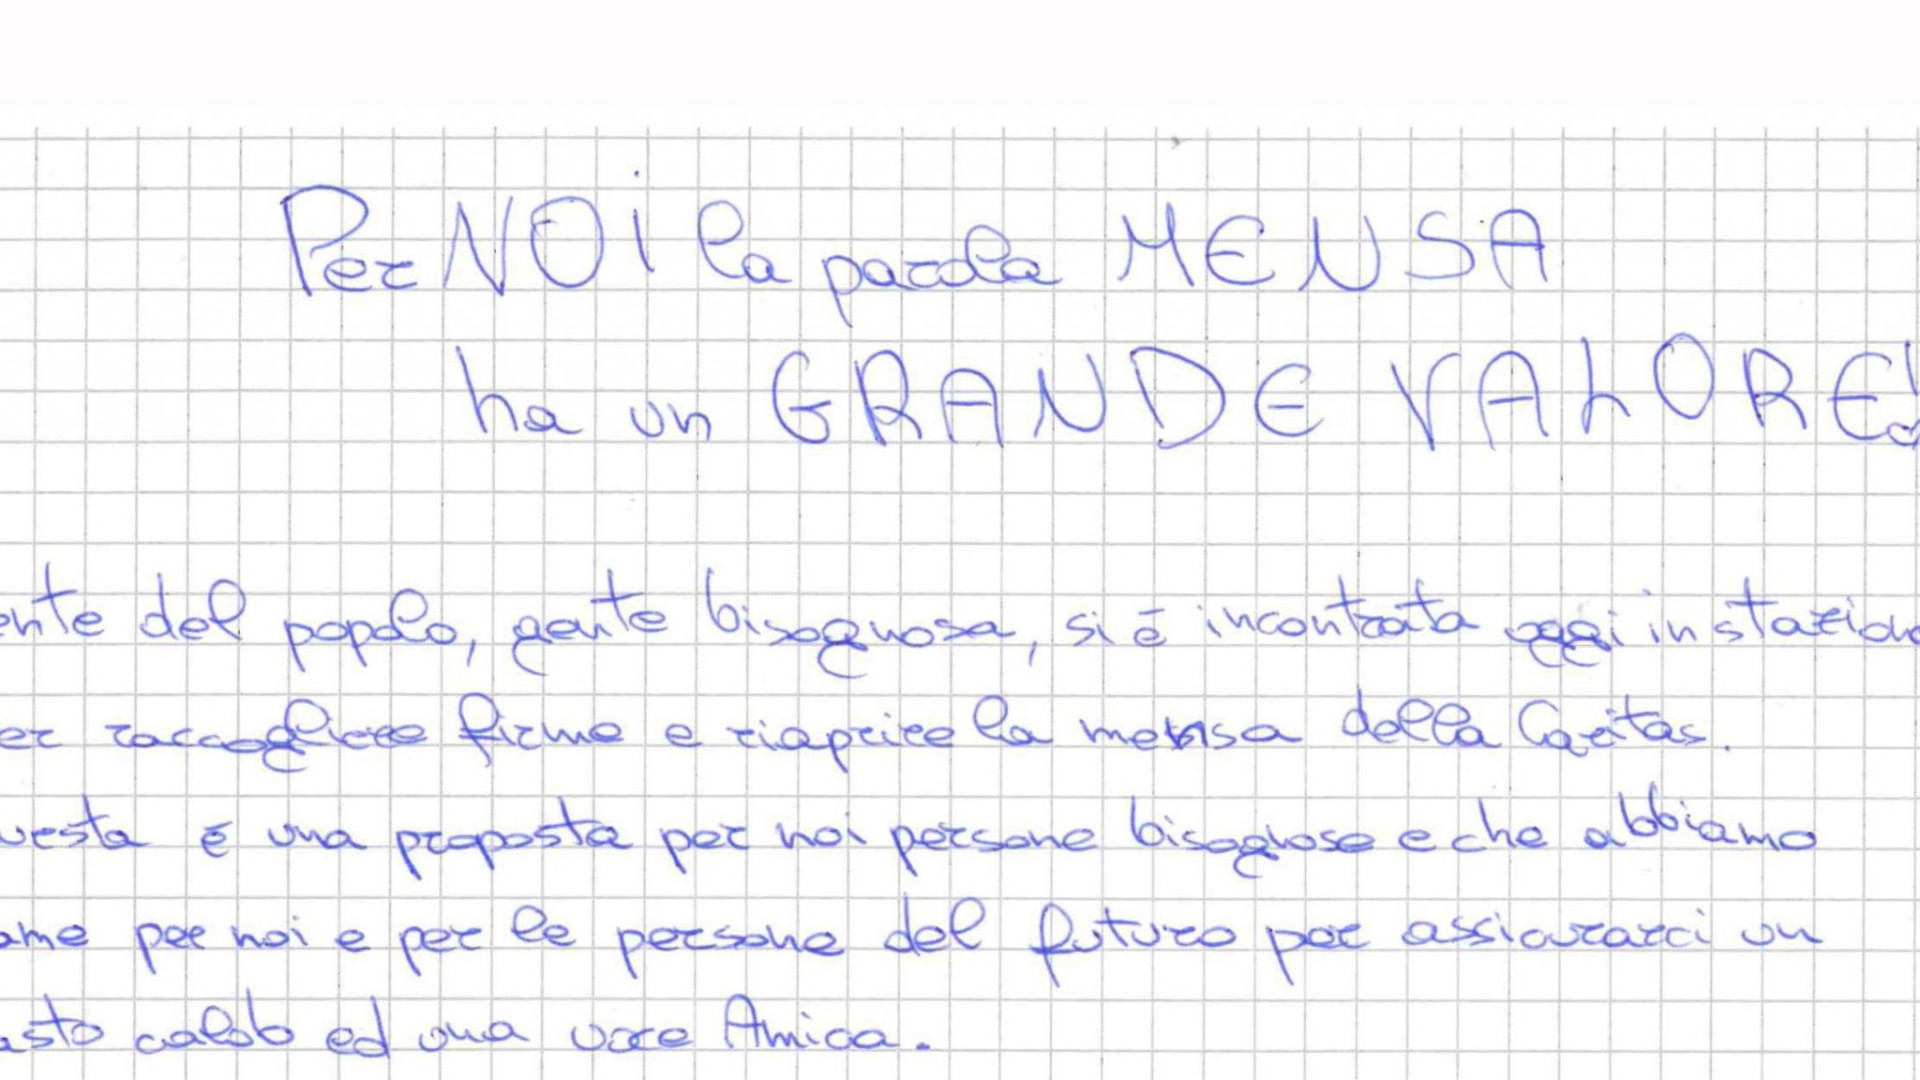 Per NOi la parola MENSA
ha un GRANDE VALORE!
ente del popolo, gente bisognosa, si è incontrata oggi in stazione
er raccogliere firme e riaprire la mensa della Caritas.
uesta è una proposta per noi persone bisognose e che abbiamo
ame per noi e per le persone del futuro per assicurarci un
asto caldo ed una voce Amica.